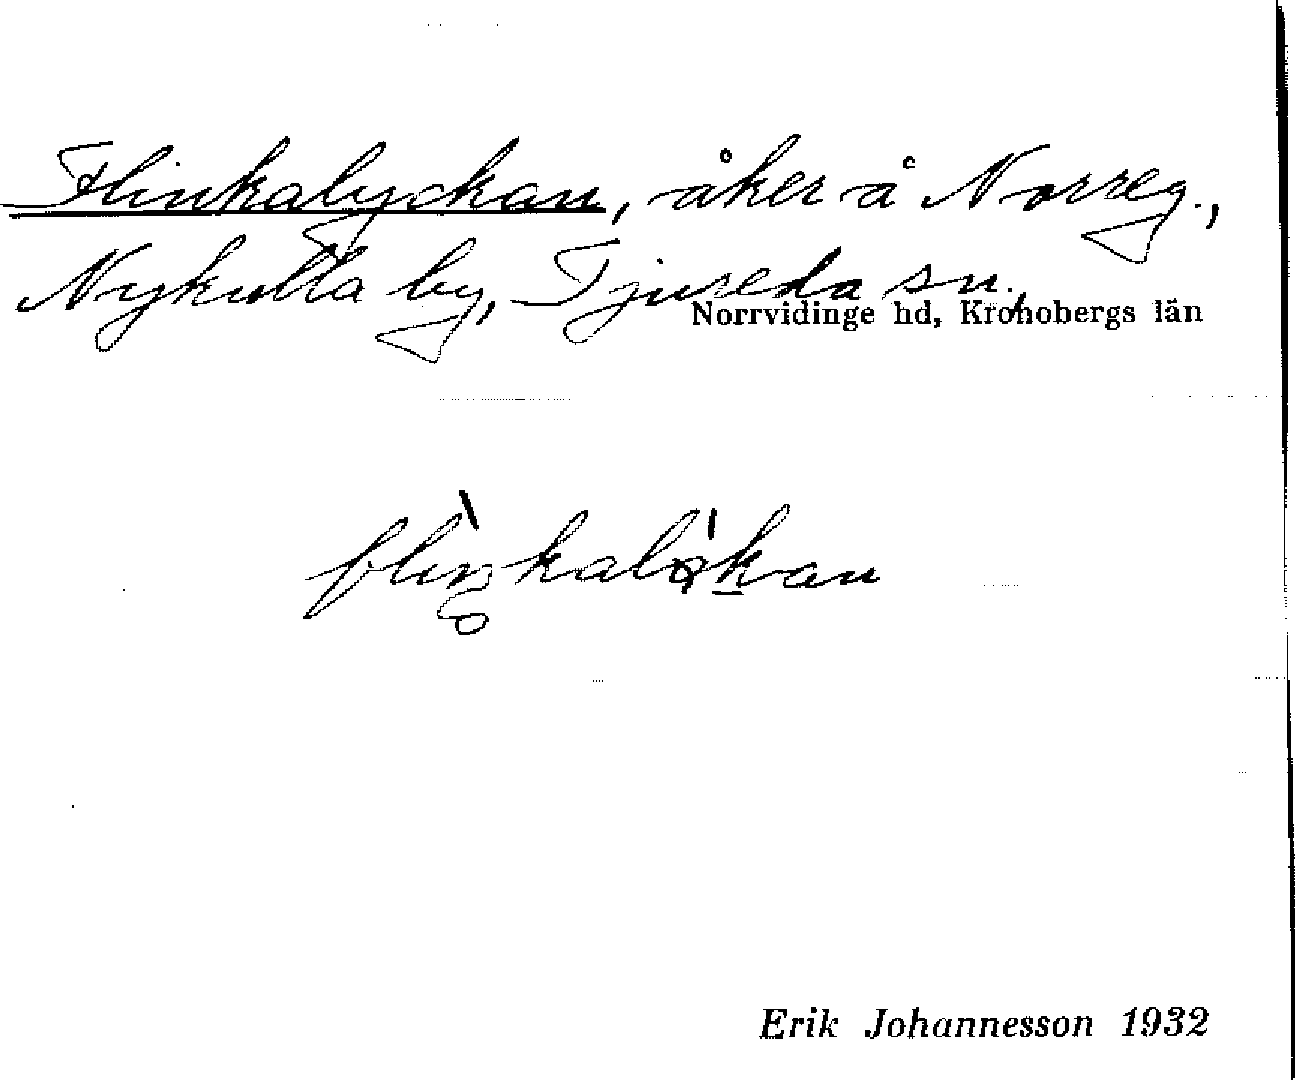 Flinkalyckan, åker å Norreg.,
Nykulla by, Tjureda sn.,
Norrvidinge hd, Kronobergs län
Erik Johannesson 1932